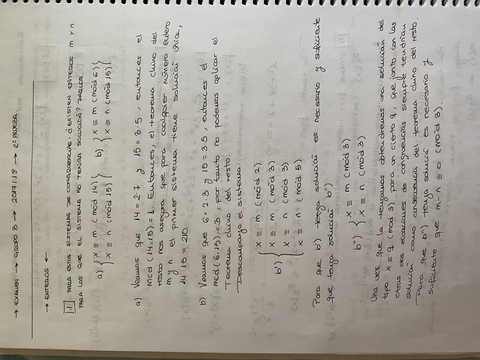 → EXAMEN → GRUPO B → 2017/18 → 2ª PRUEBA.
→ ENTEROS ←
1 PARA ESTOS SISTEMAS DE CONGRUENCIAS. ¿EXISTEN ENTEROS m Y n
PARA LOS QUE EL SISTEMA NO TENGA SOLUCIÓN?
a) { x ≡ m (mod 14) } b) { x ≡ m (mod 6) }
{ x ≡ n (mod 15) } { x ≡ n (mod 15) }
a) Veamos que 14 = 2·7 y 15 = 3·5, entonces el
mcd (14, 15) = 1. Entonces, el teorema chino del
resto nos asegura que para cualquier número entero
m y n el primer sistema tiene solución única,
14·15 = 210.
b) Veamos que 6 = 2·3 y 15 = 3·5, entonces el
mcd (6, 15) = 3, por tanto no podemos aplicar el
Teorema chino del resto.
Descompongo el sistema:
b') { x ≡ m (mod 2)
x ≡ m (mod 3)
x ≡ n (mod 3)
x ≡ n (mod 5)
Para que b') tenga solución es necesario y suficiente
que tenga solución b'')
b'') { x ≡ m (mod 3)
x ≡ n (mod 3)
Una vez que la tengamos obtendremos una solución del
tipo x ≡ q (mod 3) para un cierto q, que junto con las
otras dos ecuaciones de congruencias siempre tendrían
solución como consecuencia del teorema chino del resto
Para que b'') tenga solución es necesario y
suficiente que m - n ≡ 0 (mod 3).